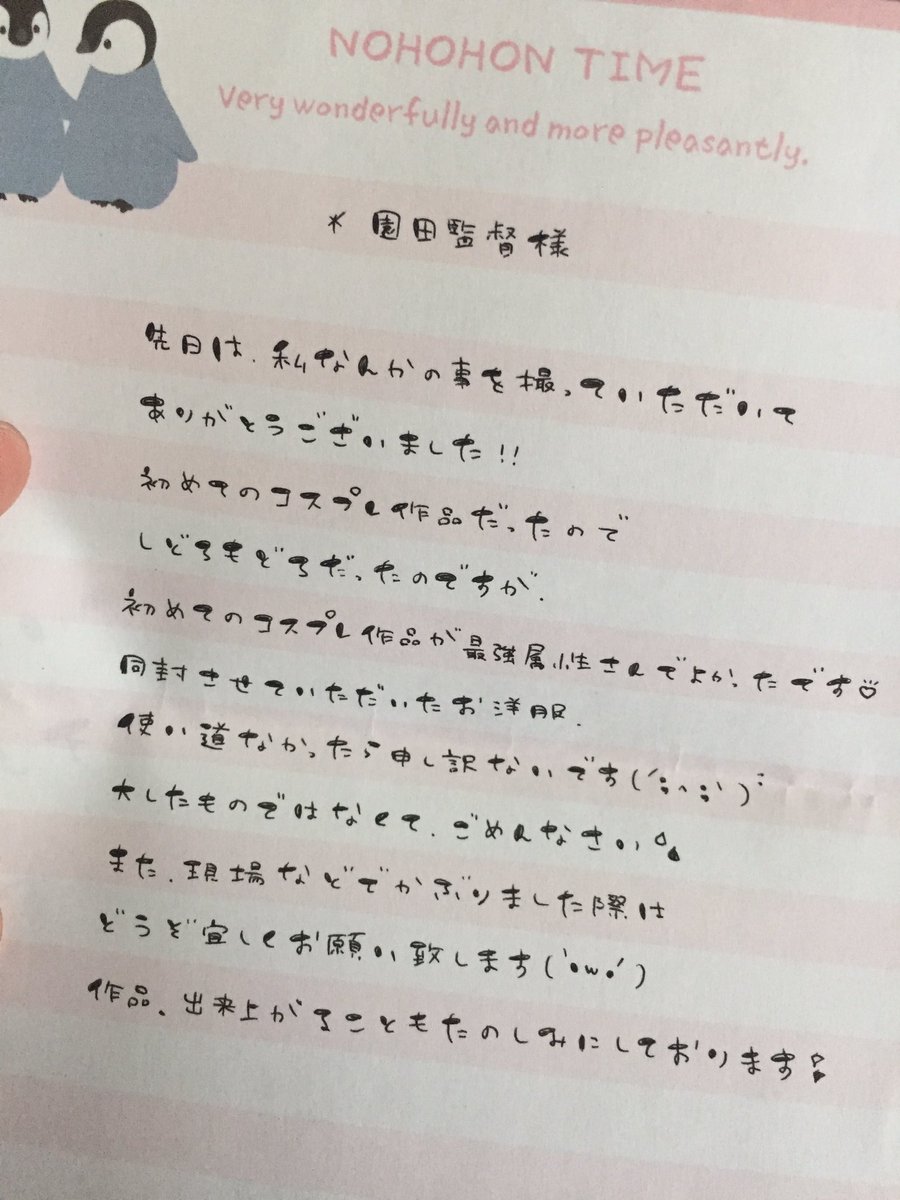 NOHOHON TIME
Very wonderfully and more pleasantly.
* 園田監督様
先日は、私なんかの事を撮っていただいて
ありがとうございました!!
初めてのコスプレ作品だったので
しどろもどろだったのですが、
初めてのコスプレ作品が最強属性さんでよかったです♡
同封させていただいたお洋服、
使い道なかったら申し訳ないです(´;^;`)
大したものではなくて、ごめんなさい
また、現場などでかぶりました際は
どうぞ宜しくお願い致します(`•ω•´)
作品、出来上がることもたのしみにしております